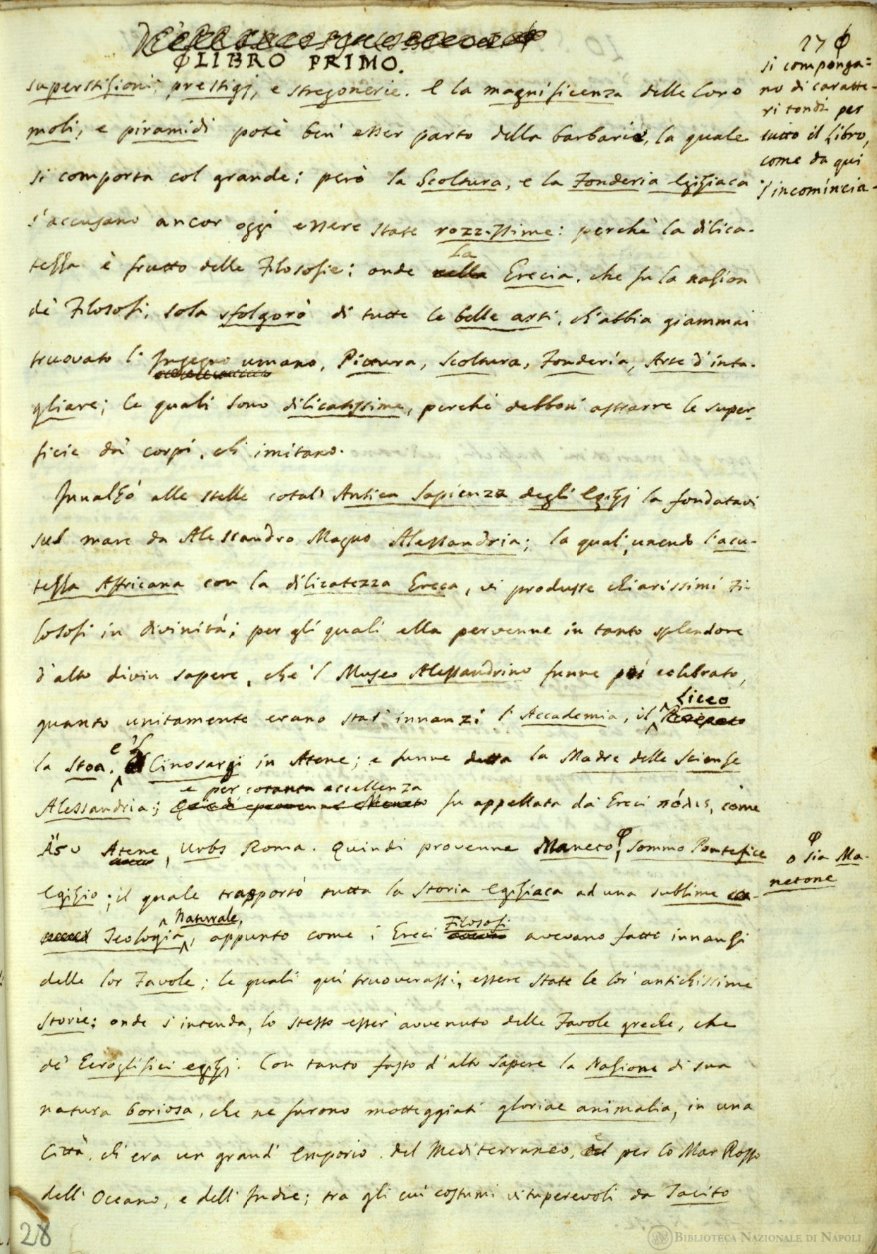 LIBRO PRIMO.
27
superstizioni, prestigj, e stregonerie. E la magnificenza delle loro
moli, e piramidi potè ben esser parto della barbarie, la quale
si comporta col grande; però la Scoltura, e la Fonderia Egiziaca
s'accusano ancor oggi essere state rozzissime: perchè la dilica-
tezza è frutto delle Filosofie; onde la Grecia, che fu la nazion
de' Filosofi, sola sfolgorò di tutte le belle arti, ch'abbia giammai
truovato l'Ingegno umano, Pittura, Scoltura, Fonderia, Arte d'inta-
gliare; le quali sono dilicatissime, perchè debbon' astrarre le super-
ficie da' corpi, ch'imitano.
Innalzò alle stelle cotal' Antica Sapienza degli Egizj la fondatavi
sul mare da Alessandro Magno Alessandria; la qual', unendo l'acu-
tezza Affricana con la dilicatezza Greca, vi produsse chiarissimi Fi-
losofi in Divinità; per gli quali ella pervenne in tanto splendore
d'alto divin sapere, che 'l Museo Alessandrino funne poi celebrato,
quanto unitamente erano stat' innanzi l'Accademia, il Liceo
la Stoa, e 'l Cinosargi in Atene; e funne detta la Madre delle Scienze
Alessandria; e per cotanta accellenza fu appellata da' Greci πόλις, come
Ἄστυ Atene, Urbs Roma. Quindi provenne Maneto, sommo Pontefice
Egizio; il quale trasportò tutta la Storia Egiziaca ad una sublime
Teologia Naturale, appunto come i Greci Filosofi avevano fatto innanzi
delle lor Favole; le quali qui truoverassi, essere state le lor' antichissime
Storie; onde s'intenda, lo stesso esser' avvenuto delle Favole greche, che
de' Geroglifici egizj. Con tanto fasto d'alto sapere la Nazione di sua
natura boriosa, che ne furono motteggiati gloriae animalia, in una
Città, ch'era un grand' Emporio del Mediterraneo, e per lo Mar Rosso
dell' Oceano, e dell' Indie; tra gli cui costumi vituperevoli da Tacito
si componga=
no di caratte-
ri tondi per
tutto il Libro,
come da qui
s'incomincia-
o sia Ma-
netone
28
BIBLIOTECA NAZIONALE DI NAPOLI